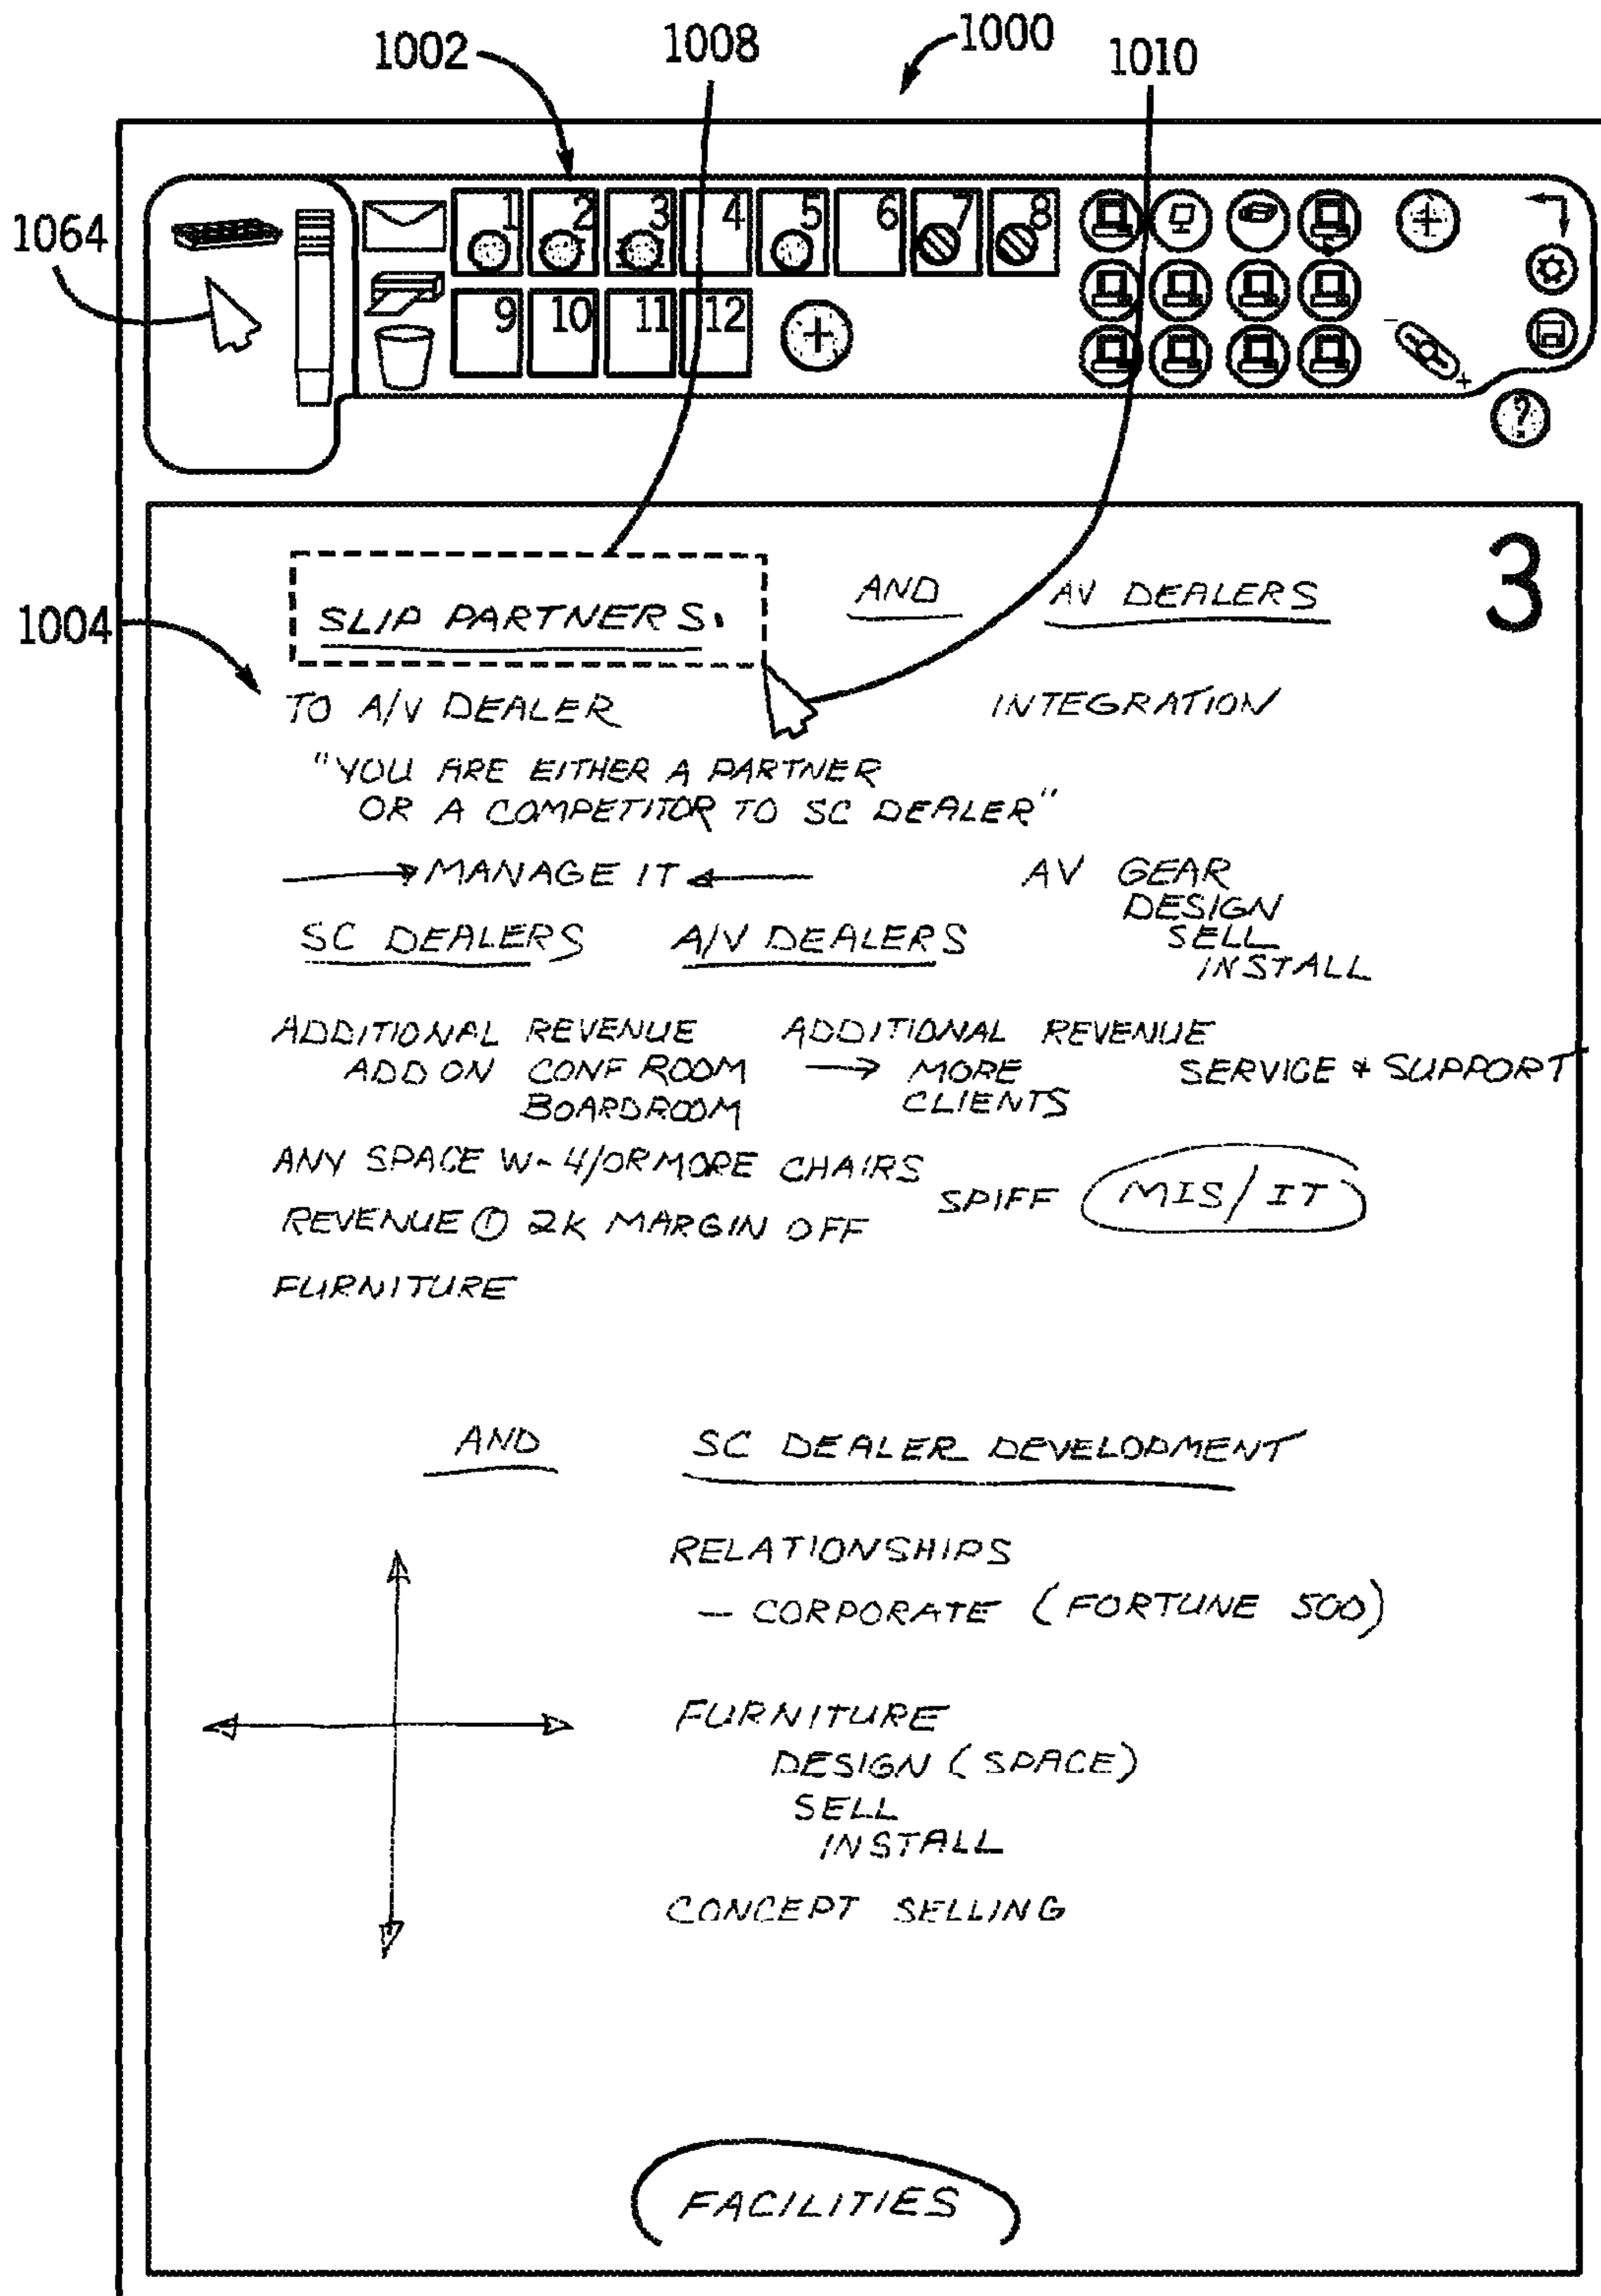 1002
1008
1000
1010
1064
1 2 3 4 5 6 7 8
9 10 11 12
?
3
1004
SLIP PARTNERS.
AND AV DEALERS
TO A/V DEALER
INTEGRATION
"YOU ARE EITHER A PARTNER
OR A COMPETITOR TO SC DEALER"
MANAGE IT
AV GEAR
DESIGN
SELL
INSTALL
SC DEALERS A/V DEALERS
ADDITIONAL REVENUE
ADD ON CONF ROOM
BOARDROOM
ADDITIONAL REVENUE
→ MORE
CLIENTS
SERVICE & SUPPORT
ANY SPACE W- 4/OR MORE CHAIRS
SPIFF MIS/IT
REVENUE ① 2K MARGIN OFF
FURNITURE
AND SC DEALER DEVELOPMENT
RELATIONSHIPS
— CORPORATE (FORTUNE 500)
FURNITURE
DESIGN (SPACE)
SELL
INSTALL
CONCEPT SELLING
FACILITIES